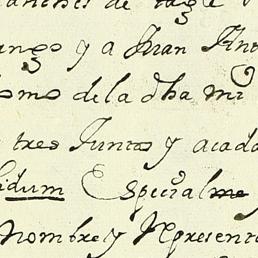 de
y a Juan Ant
de la dha mi
tres Juntos y acada
idum Especialme
Nombre y Represent